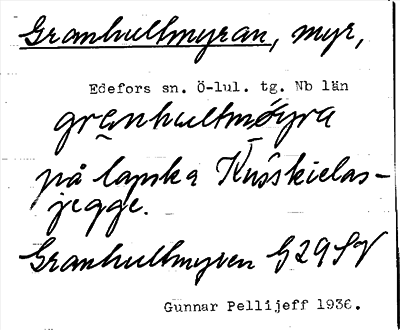 Granhultmyran, myr,
Edefors sn. Ö-lul. tg. Nb län
granhultmøyra
på lapska Kusskielas-
jegge.
Granhultmyren G29SV
Gunnar Pellijeff 1936.